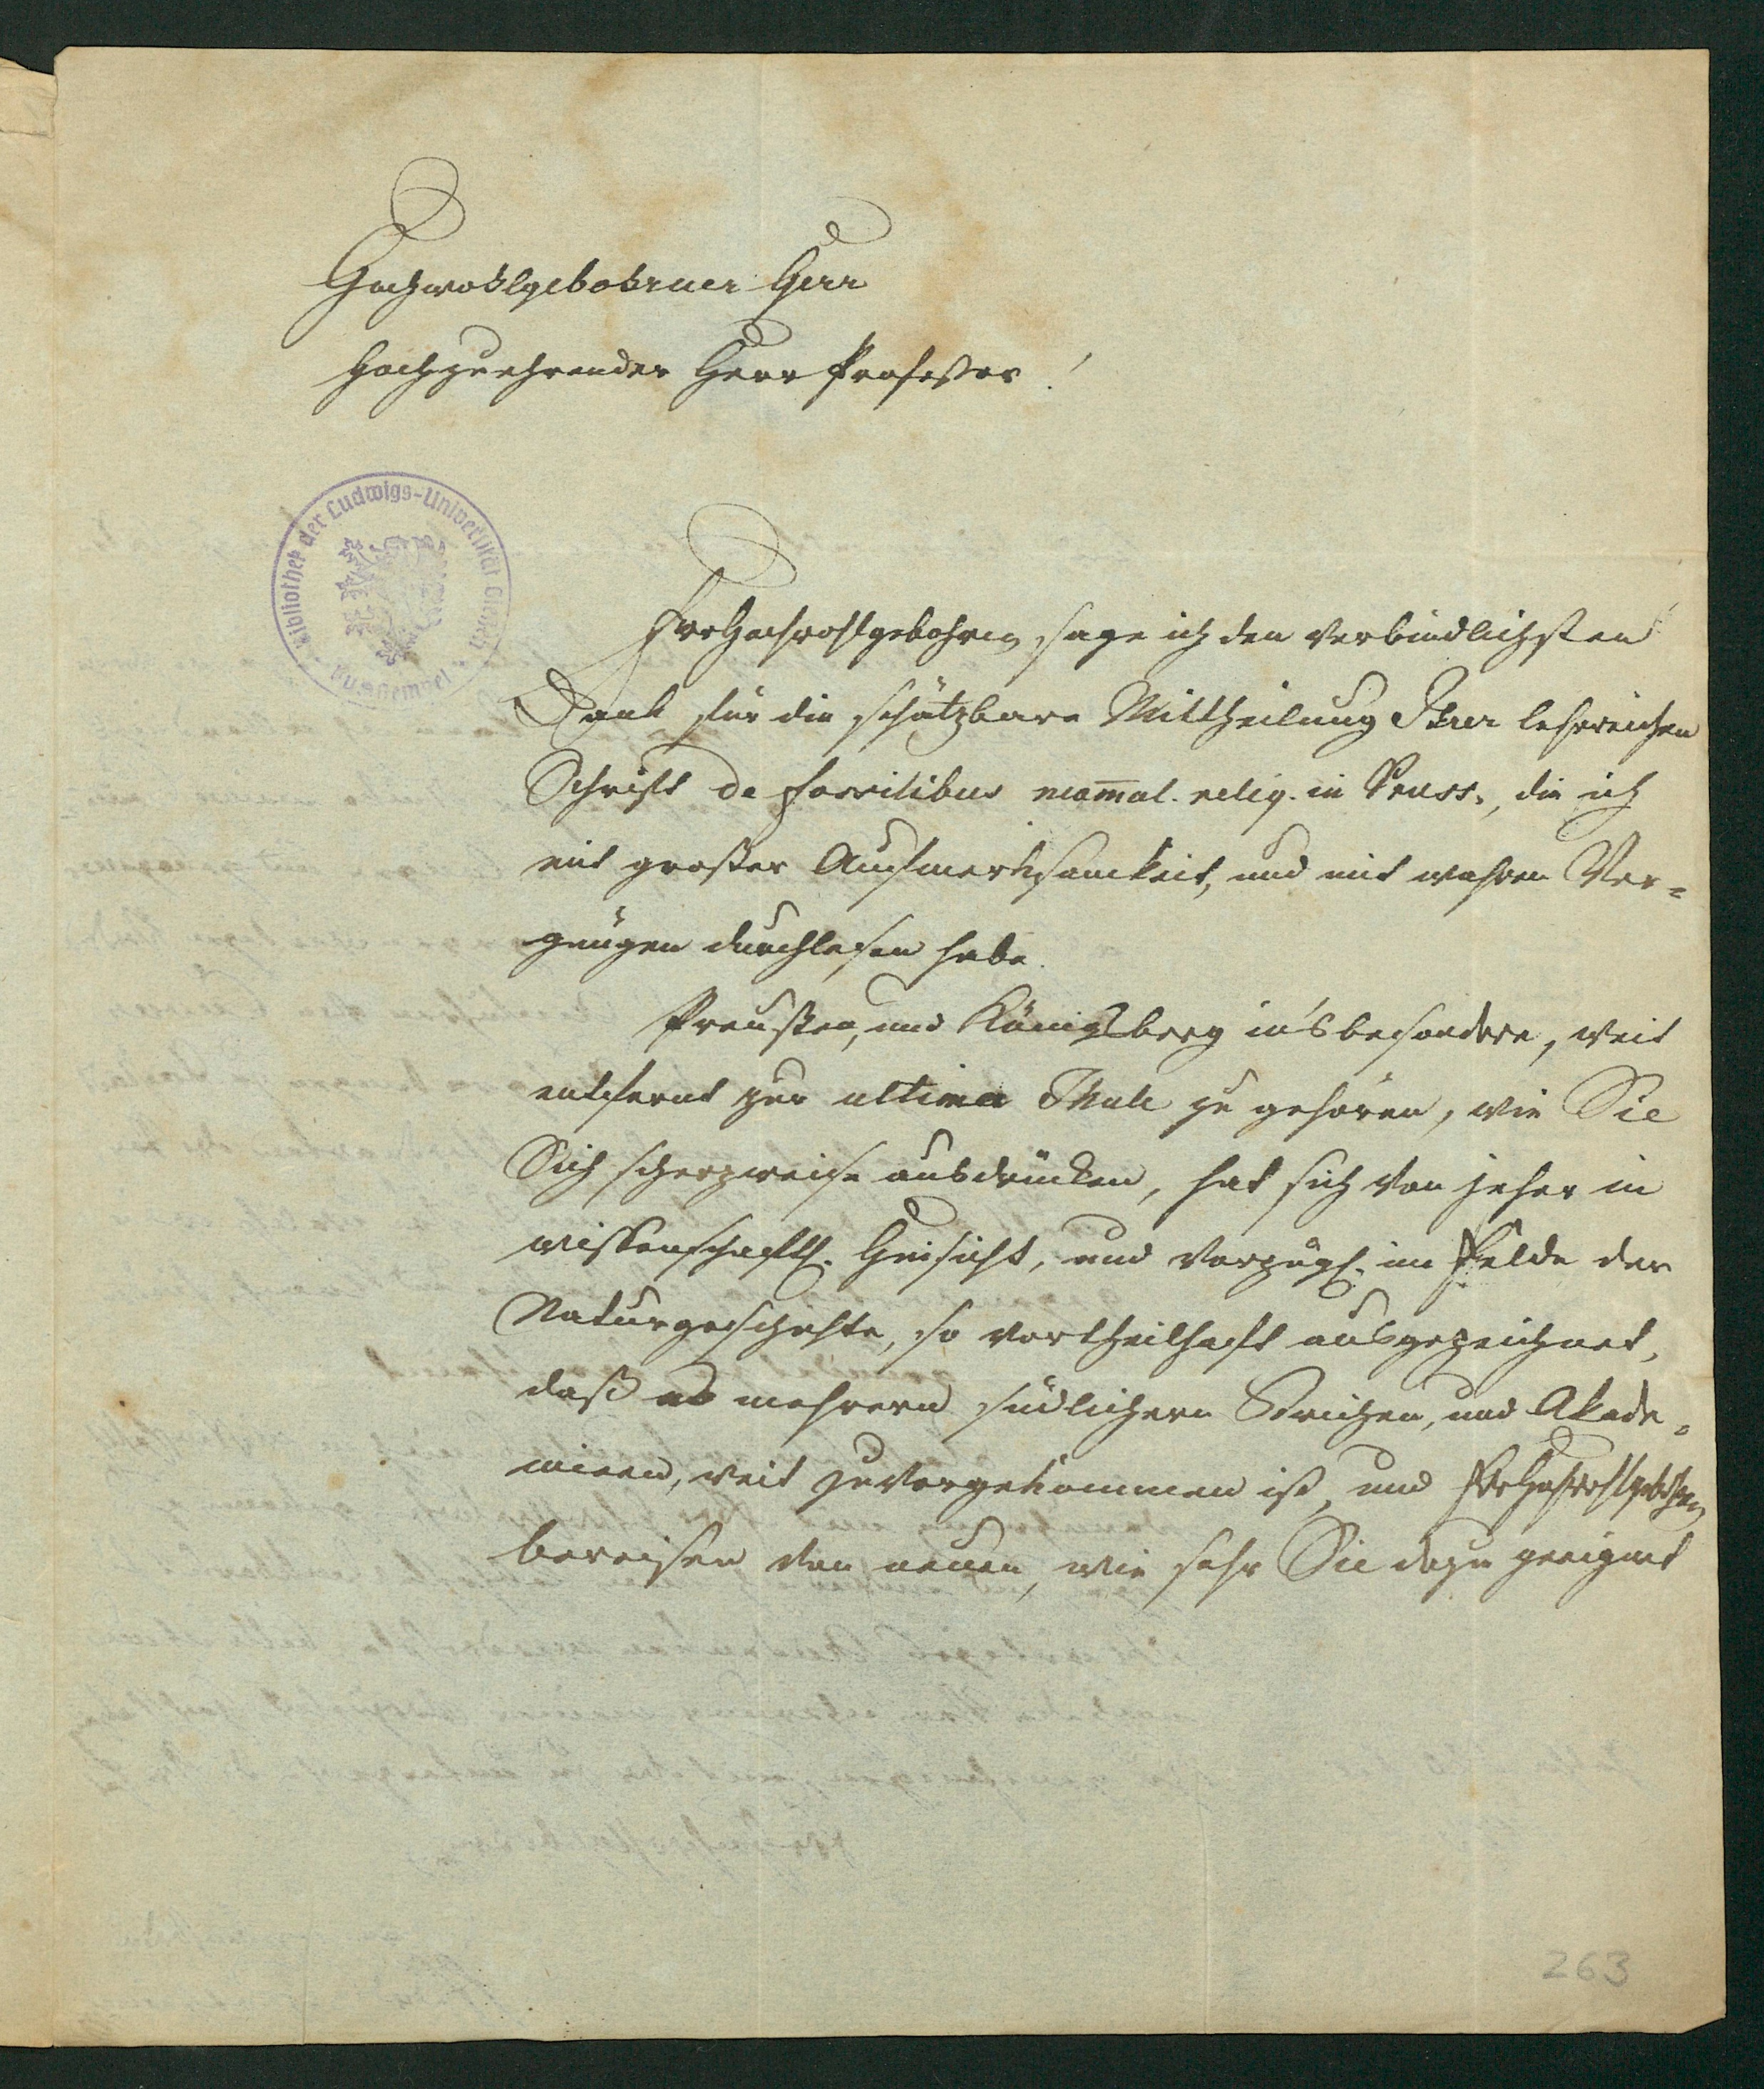 Hochwohlgebohrner Herr
Hochzuehrender Herr Professor!
Bibliothek der Ludwigs-Universität Giessen
Ew Hochwohlgebohren sage ich den verbindlichsten
Dank für die schätzbare Mittheilung Ihrer lehrreichen
Schrift de fossilibus mam̅al. reliq. in Pruss., die ich
mit großer Aufmerksamkeit, und mit wahrem Ver-
gnügen durchlesen habe.
Preußen, und Königsberg in'sbesondere, weit
entfernt zur ultima Thule zu gehören, wie Sie
Sich scherzweise ausdrücken, hat sich von jeher in
wissenschaftl. Hinsicht, und vorzügl. im Felde der
Naturgeschichte, so vortheilhaft ausgezeichnet,
daß es mehrern südlichern Strichen, und Akade-
mieen, weit zuvorgekommen ist, und Ew Hochwohlgebohren
beweisen von neuen, wie sehr Sie dazu geeignet
263